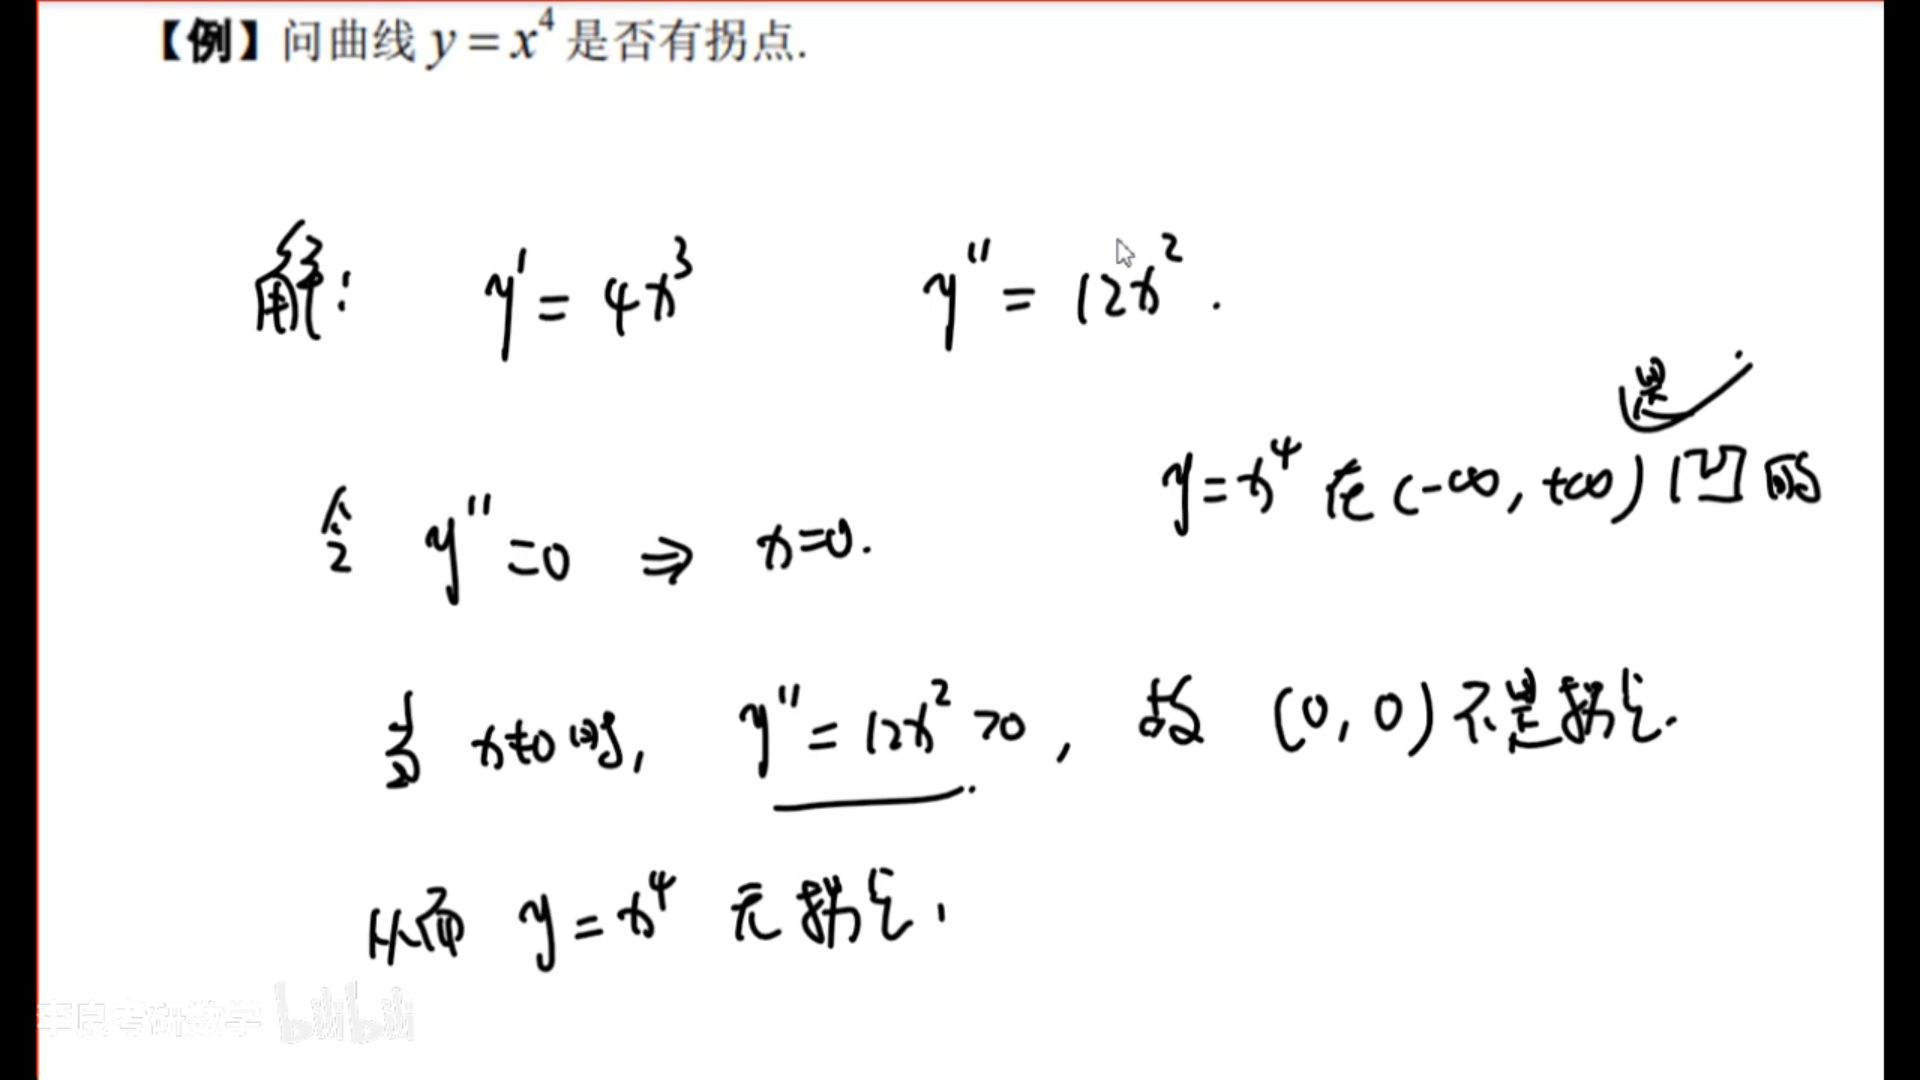 【例】问曲线 y = x⁴ 是否有拐点.
解: y' = 4x³ y'' = 12x².
是
y = x⁴ 在 (-∞, +∞) 凹的
令 y'' = 0 ⇒ x = 0.
当 x≠0 时, y'' = 12x² > 0, 故 (0, 0) 不是拐点.
从而 y = x⁴ 无拐点.
李良考研数学 bilibili